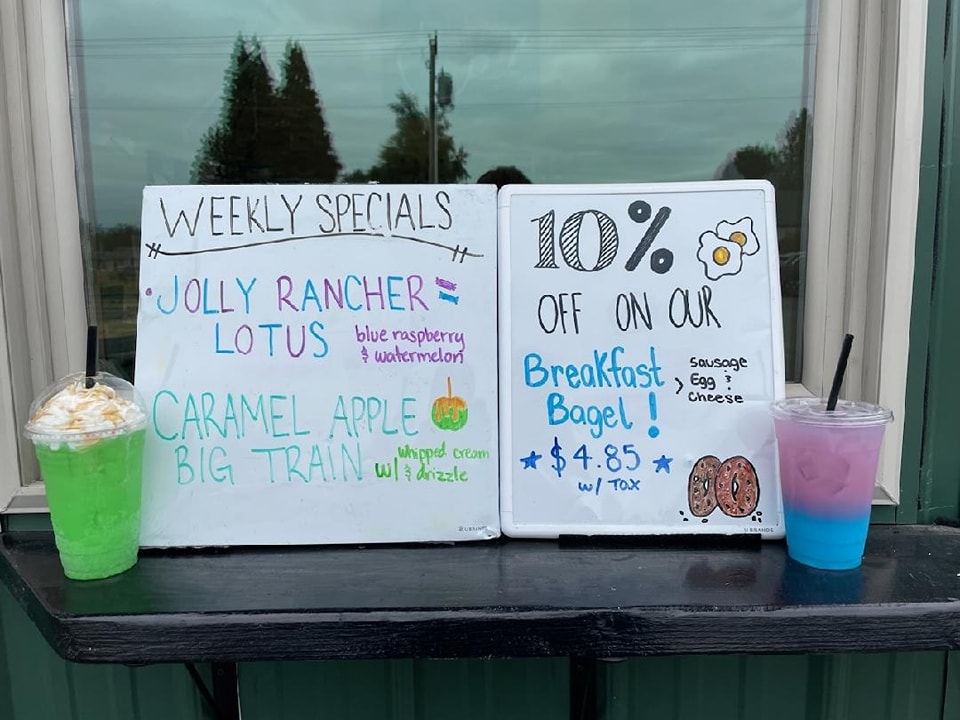 WEEKLY SPECIALS
JOLLY RANCHER
LOTUS
blue raspberry
& watermelon
CARAMEL APPLE
BIG TRAIN
w/
whipped cream
& drizzle
10%
OFF ON OUR
Breakfast
Bagel!
sausage
Egg &
cheese
$4.85
w/ Tax
U BRANDS
U BRANDS